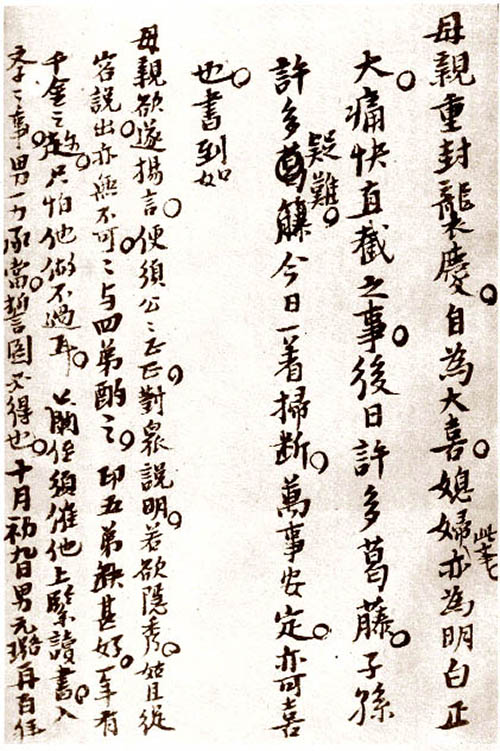 母親重封襲慶。自為大喜。媳婦亦為明白正
此事
大。痛快直截之事。後日許多葛藤。子孫
許多藤今日一着掃斷。萬事安定。亦可喜
疑難。
也。書到如
母親欲遂揚言。便須公〻正正。對衆說明。若欲隱秀。姑且從
容說出亦無不可。〻与四弟酌之。即五弟缺甚好。一年有
千金之只怕他做不過耳。蘭侄須催他上緊讀書。入
之事。男一力承當。誓必得也。十月初九日男元璐再百拜